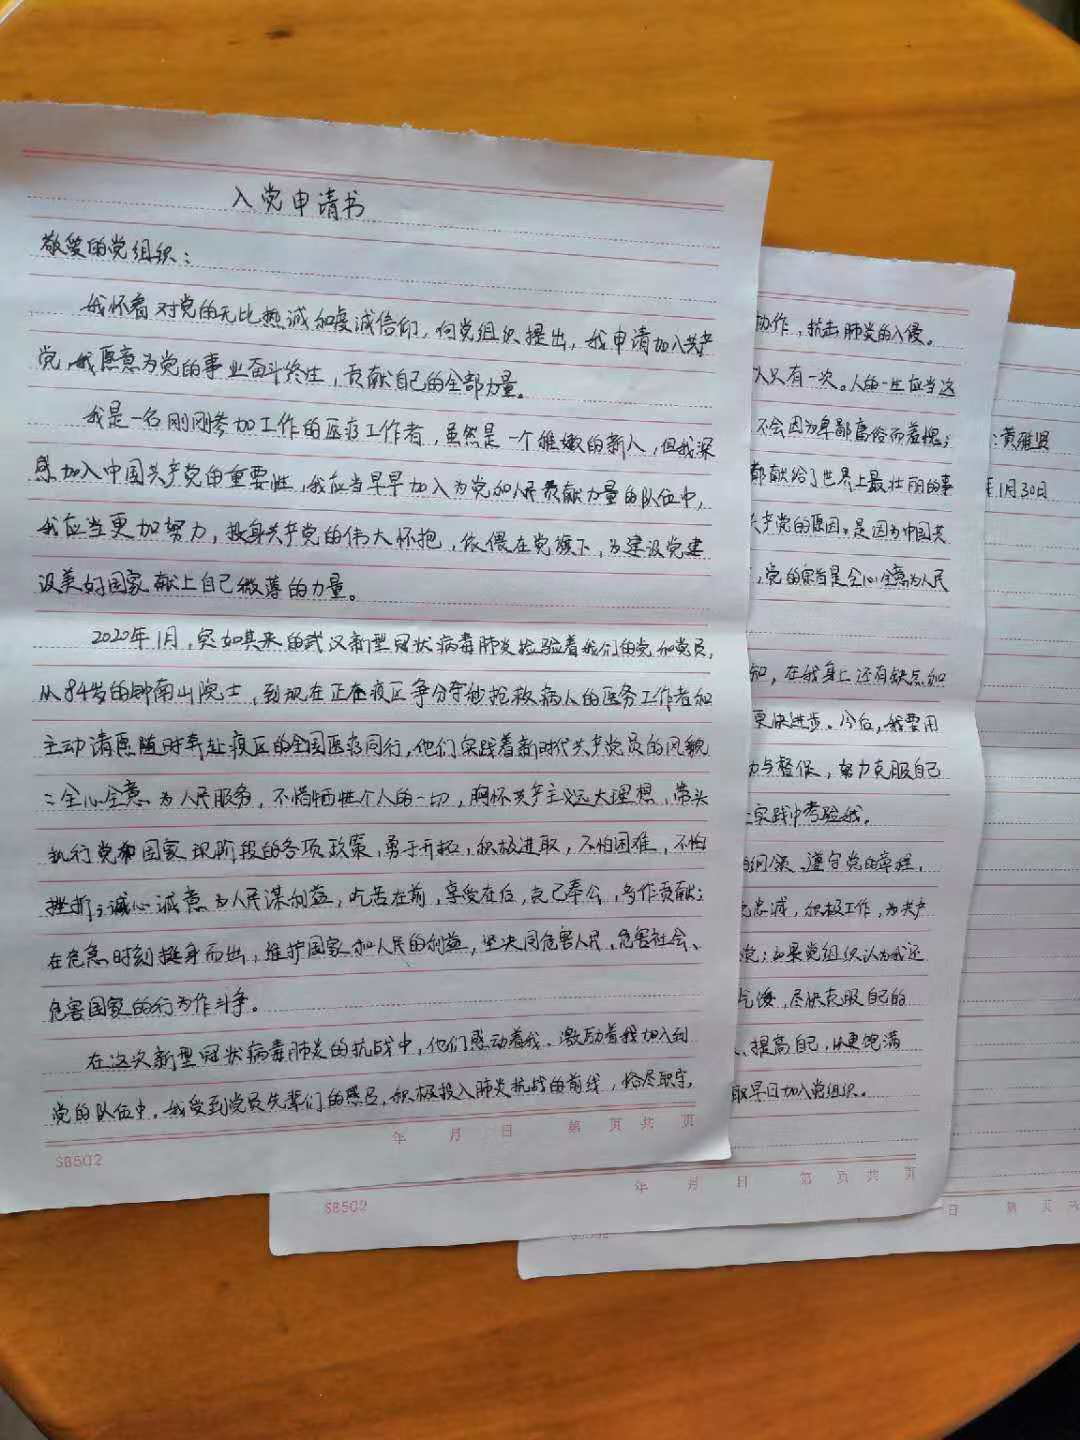 入党申请书
敬爱的党组织：
我怀着对党的无比热诚和虔诚信仰，向党组织提出，我申请加入共产
党，我愿意为党的事业奋斗终生，贡献自己的全部力量。
我是一名刚刚参加工作的医疗工作者，虽然是一个稚嫩的新人，但我深
感加入中国共产党的重要性，我应当早早加入为党和人民贡献力量的队伍中，
我应当更加努力，投身共产党的伟大怀抱，依偎在党旗下，为建设党建
设美好国家献上自己微薄的力量。
2020年1月，突如其来的武汉新型冠状病毒肺炎检验着我们的党和党员，
从84岁的钟南山院士，到现在正在疫区争分夺秒抢救病人的医务工作者和
主动请愿随时奔赴疫区的全国医疗同行，他们实践着新时代共产党员的风貌
：全心全意为人民服务，不惜牺牲个人的一切，胸怀共产主义远大理想，带头
执行党和国家现阶段的各项政策，勇于开拓，积极进取，不怕困难，不怕
挫折；诚心诚意为人民谋利益，吃苦在前，享受在后，克己奉公，多作贡献；
在危急时刻挺身而出，维护国家和人民的利益，坚决同危害人民、危害社会、
危害国家的行为作斗争。
在这次新型冠状病毒肺炎的抗战中，他们感动着我、激励着我加入到
党的队伍中。我受到党员先辈们的感召，积极投入肺炎抗战的前线，恪尽职守，
年 月 日 第 页 共 页
SB502
协作，抗击肺炎的入侵。
人只有一次。人的一生应当这
不会因为卑鄙庸俗而羞愧；
都献给了世界上最壮丽的事
共产党的原因。是因为中国共
，党的宗旨是全心全意为人民
知，在我身上还有缺点和
更快进步。今后，我要用
与督促，努力克服自己
实践中考验我。
的纲领、遵守党的章程，
党忠诚，积极工作，为共产
党；如果党组织认为我还
气馁，尽快克服自己的
、提高自己，以更饱满
取早日加入党组织。
年 月 日 第 页 共 页
SB502
：黄雅贤
年1月30日
日 第 页 共